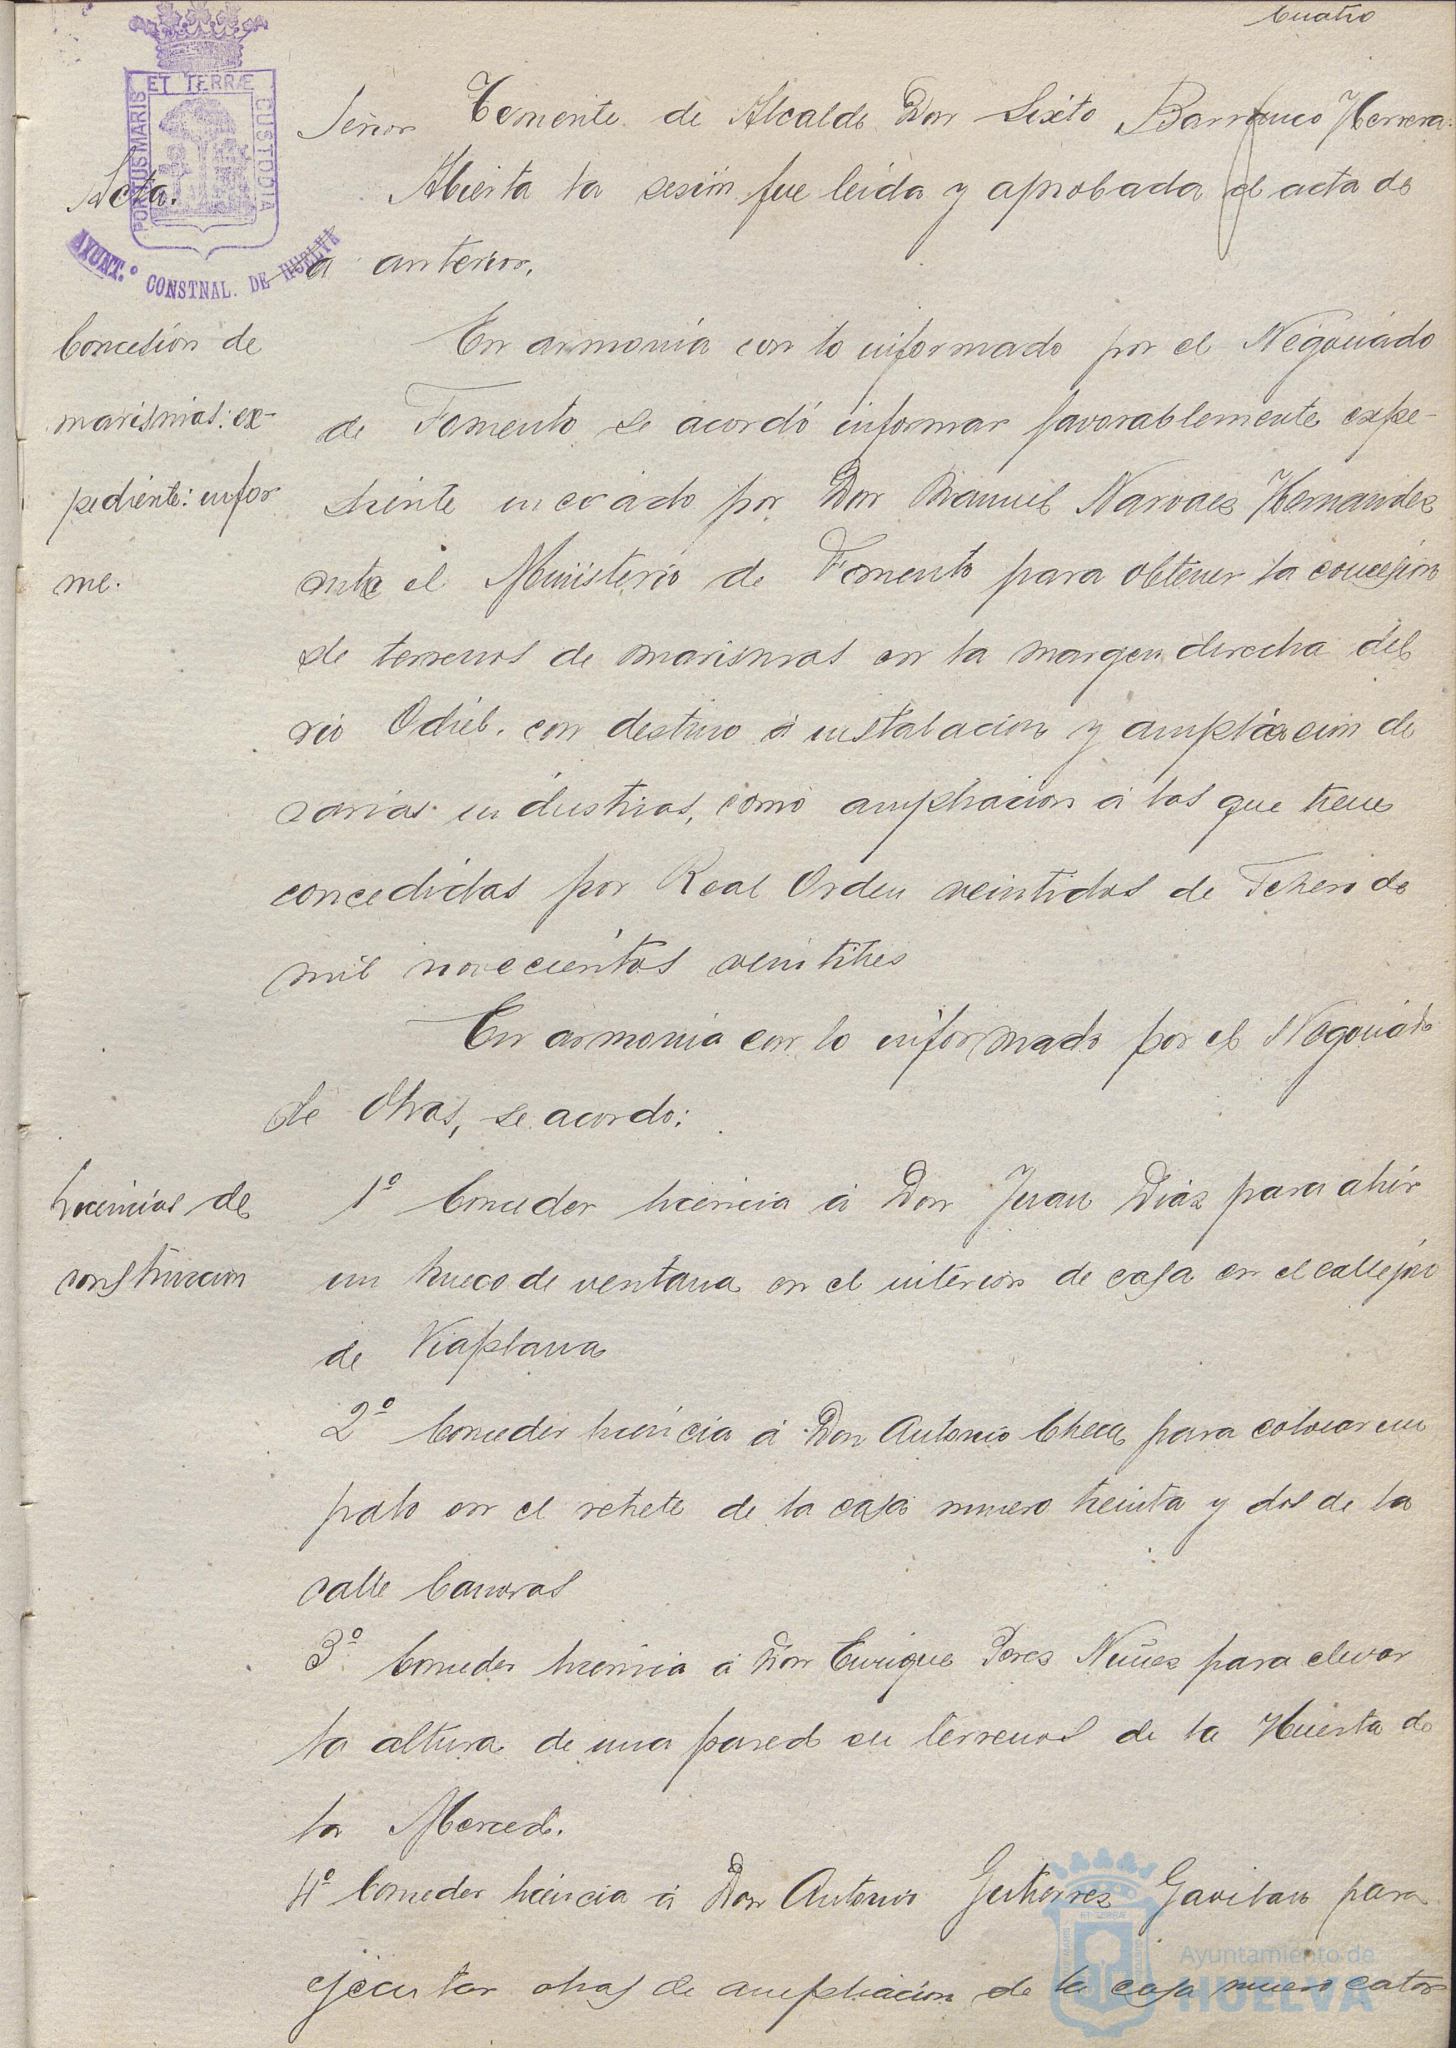 cuatro
Señor Teniente de Alcalde Don Sixto Barranco Herrera.
Acta.
Abierta la sesion fue leida y aprobada el acta de
a anterior.
PORTUS MARIS ET TERRÆ CUSTODIA
AYUNT.º CONSTNAL. DE HUELVA
Concesión de
marismas: ex-
pediente: infor
me.
En armonía con lo informado por el Negociado
de Fomento se acordó informar favorablemente expe-
diente incoado por Don Manuel Narvaez Hernandez
ante el Ministerio de Fomento para obtener la concesion
de terrenos de marismas en la margen derecha del
rio Odiel. con destino á instalacion y ampliacion de
varias industrias, como ampliacion á las que tiene
concedidas por Real Orden veintidos de Febrero de
mil novecientos veintitres
En armonia con lo informado por el Negociado
de Obras, se acordo:
Licencias de
construccion
1º Conceder licencia á Don Juan Diaz para abrir
un hueco de ventana en el interior de casa en el callejon
de Viaplana
2º Conceder licencia á Don Antonio Checa para colocar un
pato en el retrete de la casa numero treinta y dos de la
calle Canovas
3º Conceder licencia á Don Enrique Perez Nuñez para elevar
la altura de una pared en terrenos de la Huerta de
la Merced.
4º Conceder licencia á Don Antonio Gutierrez Gavilan para
ejecutar obras de ampliación de la casa numero cator
Ayuntamiento de
HUELVA